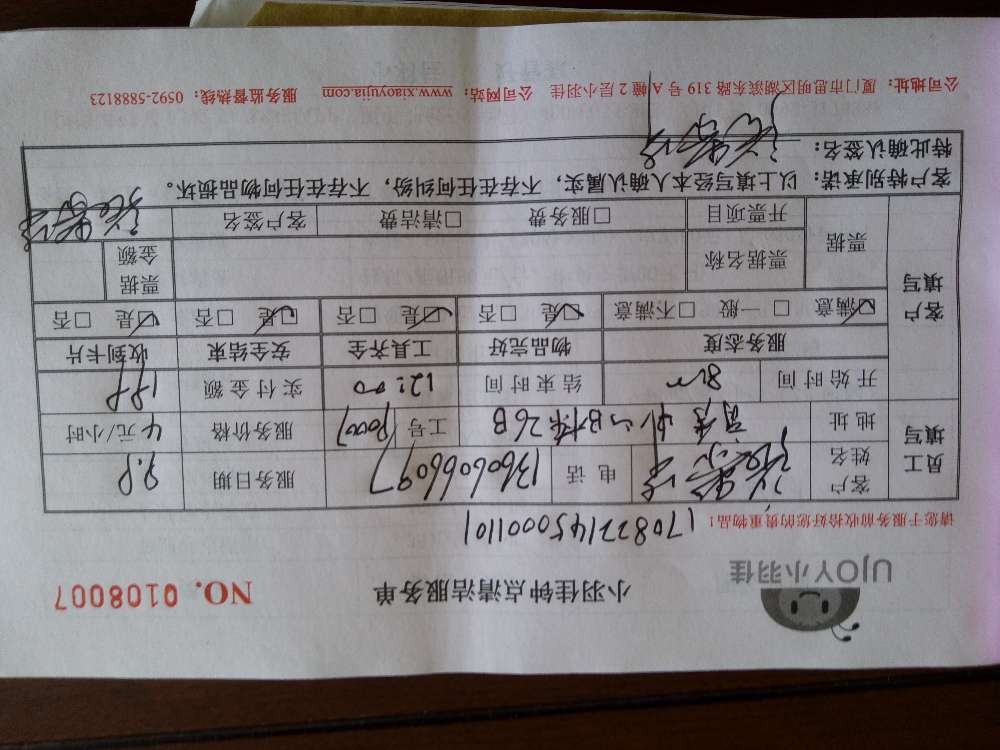 UJOY小羽佳
小羽佳钟点清洁服务单
NO. 0108007
1708221450001101
请您于服务前收拾好您的贵重物品!
员工填写
客户姓名
电话 13606066097 服务日期 9.8
地址 B栋26B 工号 P0007 服务价格 4元/小时
开始时间 结束时间 12:00 实付金额
客户填写
服务态度 物品完好 工具齐全 安全结束 收到卡片
☑满意 □一般 □不满意 ☑是 □否 ☑是 □否 ☑是 □否 ☑是 □否
票据 票据名称 票据金额
开票项目 □服务费 □清洁费 客户签名
客户特别承诺:以上填写经本人确认属实,不存在任何纠纷,不存在任何物品损坏。
特此确认签名:
公司地址:厦门市思明区湖滨东路319号A幢2层小羽佳 公司网站:www.xiaoyujia.com 服务监督热线:0592-5888123